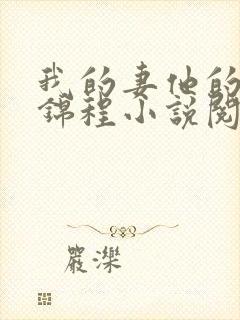 我的妻他的
錦程小說閱
嚴濼